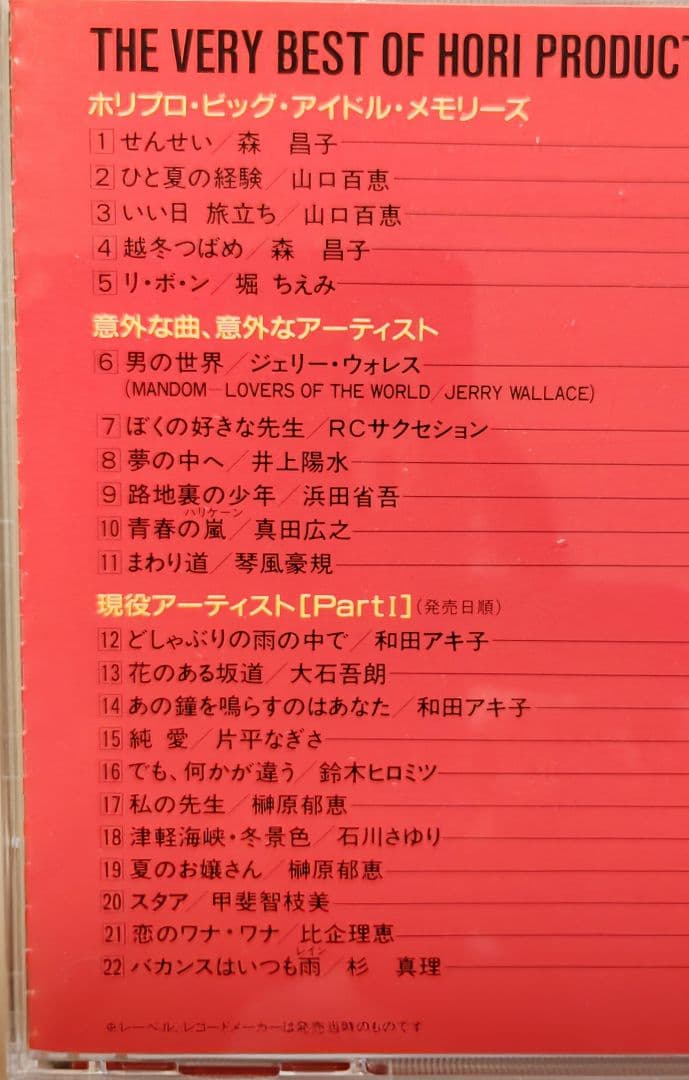 THE VERY BEST OF HORI PRODUCT
ホリプロ・ビッグ・アイドル・メモリーズ
1 せんせい／森　昌子
2 ひと夏の経験／山口百恵
3 いい日 旅立ち／山口百恵
4 越冬つばめ／森　昌子
5 リ・ボ・ン／堀 ちえみ
意外な曲、意外なアーティスト
6 男の世界／ジェリー・ウォレス
(MANDOM—LOVERS OF THE WORLD/JERRY WALLACE)
7 ぼくの好きな先生／RCサクセション
8 夢の中へ／井上陽水
9 路地裏の少年／浜田省吾
ハリケーン
10 青春の嵐／真田広之
11 まわり道／琴風豪規
現役アーティスト[PartI](発売日順)
12 どしゃぶりの雨の中で／和田アキ子
13 花のある坂道／大石吾朗
14 あの鐘を鳴らすのはあなた／和田アキ子
15 純 愛／片平なぎさ
16 でも、何かが違う／鈴木ヒロミツ
17 私の先生／榊原郁恵
18 津軽海峡・冬景色／石川さゆり
19 夏のお嬢さん／榊原郁恵
20 スタア／甲斐智枝美
21 恋のワナ・ワナ／比企理恵
レイン
22 バカンスはいつも雨／杉　真理
※レーベル、レコードメーカーは発売当時のものです